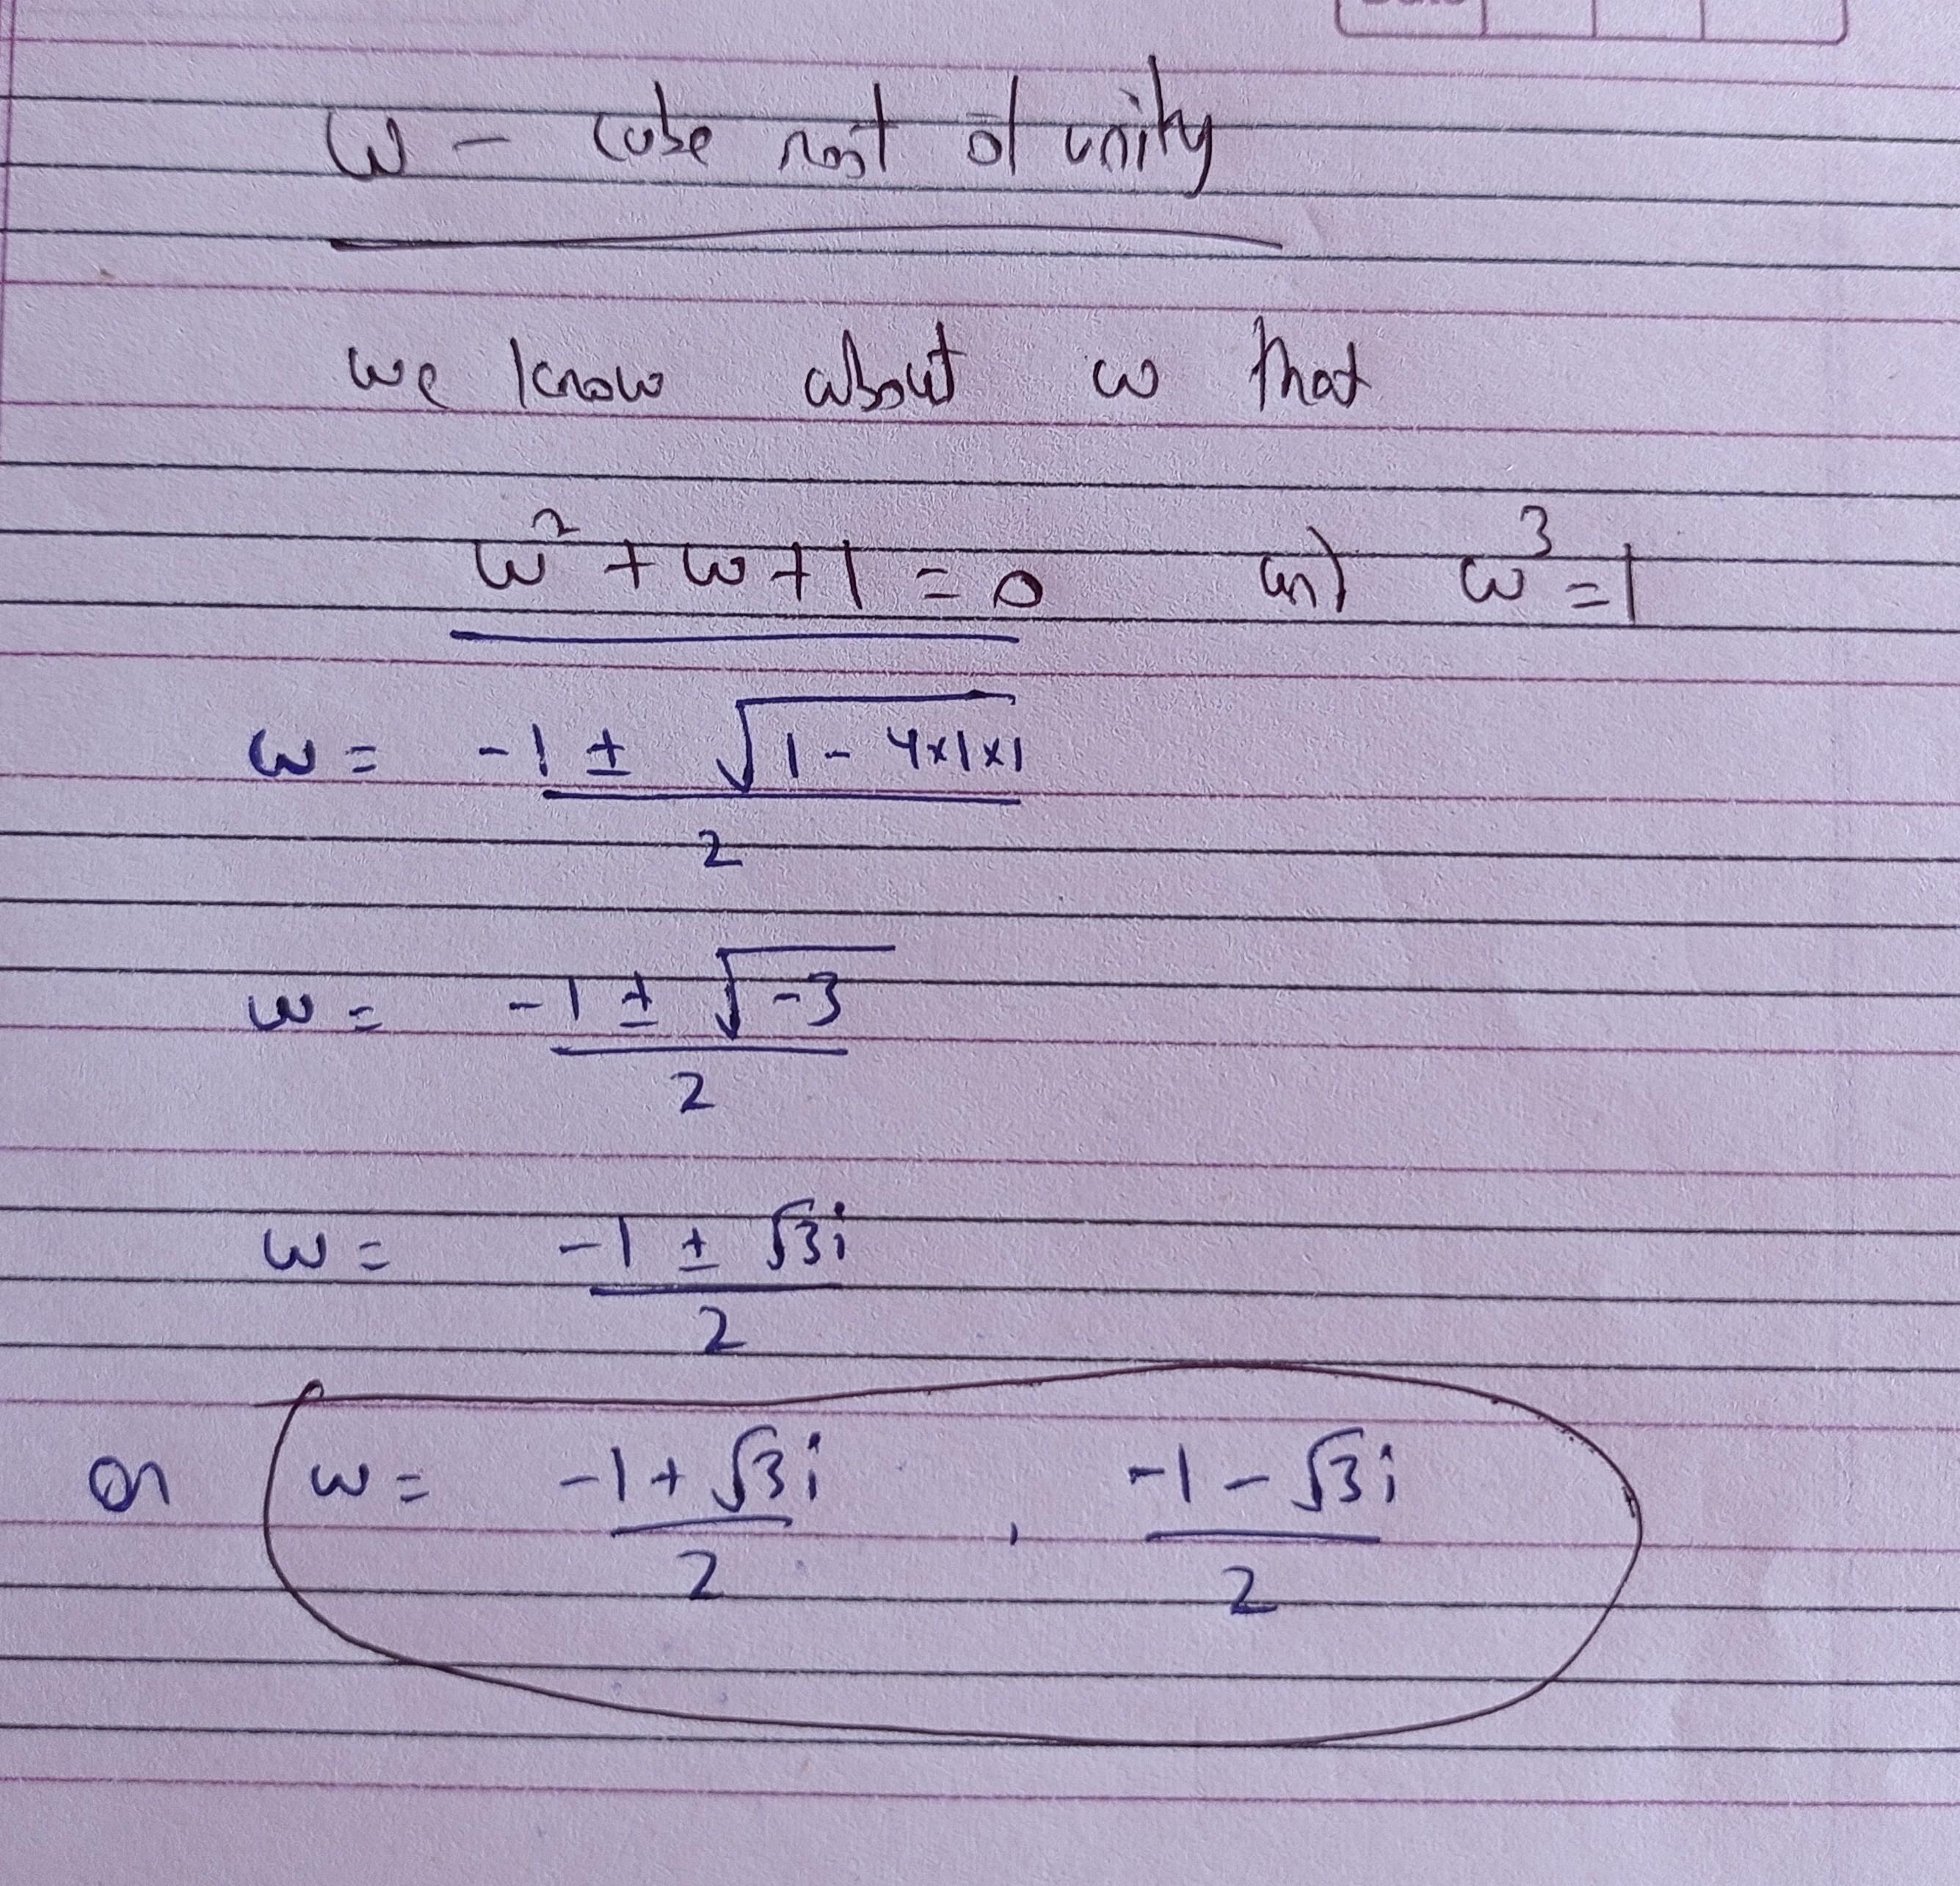 ω - cube root of unity
we know about ω that
ω² + ω + 1 = 0 and ω³ = 1
ω = -1 ± √1 - 4×1×1 / 2
ω = -1 ± √-3 / 2
ω = -1 ± √3i / 2
or ω = -1 + √3i / 2 , -1 - √3i / 2